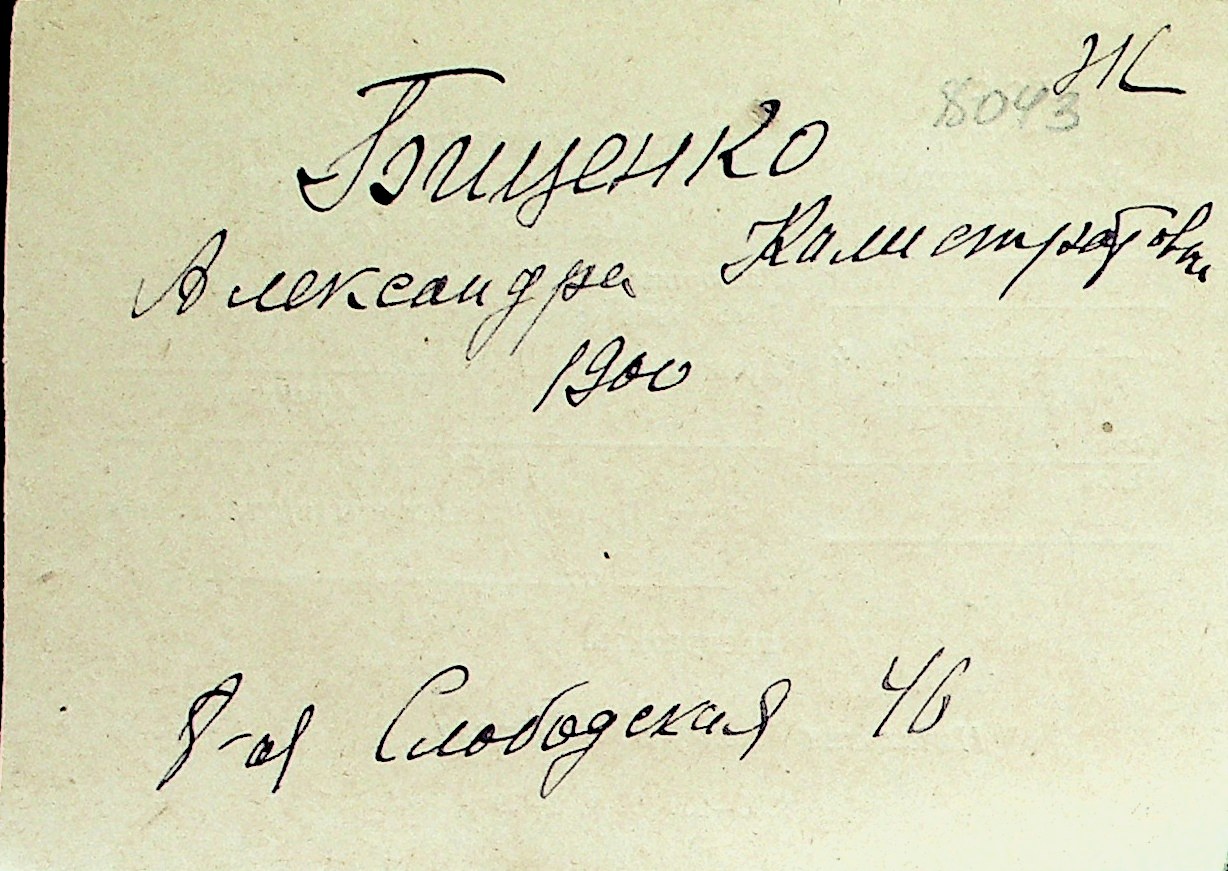 Ж
8043
Бищенко
Александра Калистратовна
1900
8-ая Слободская 46